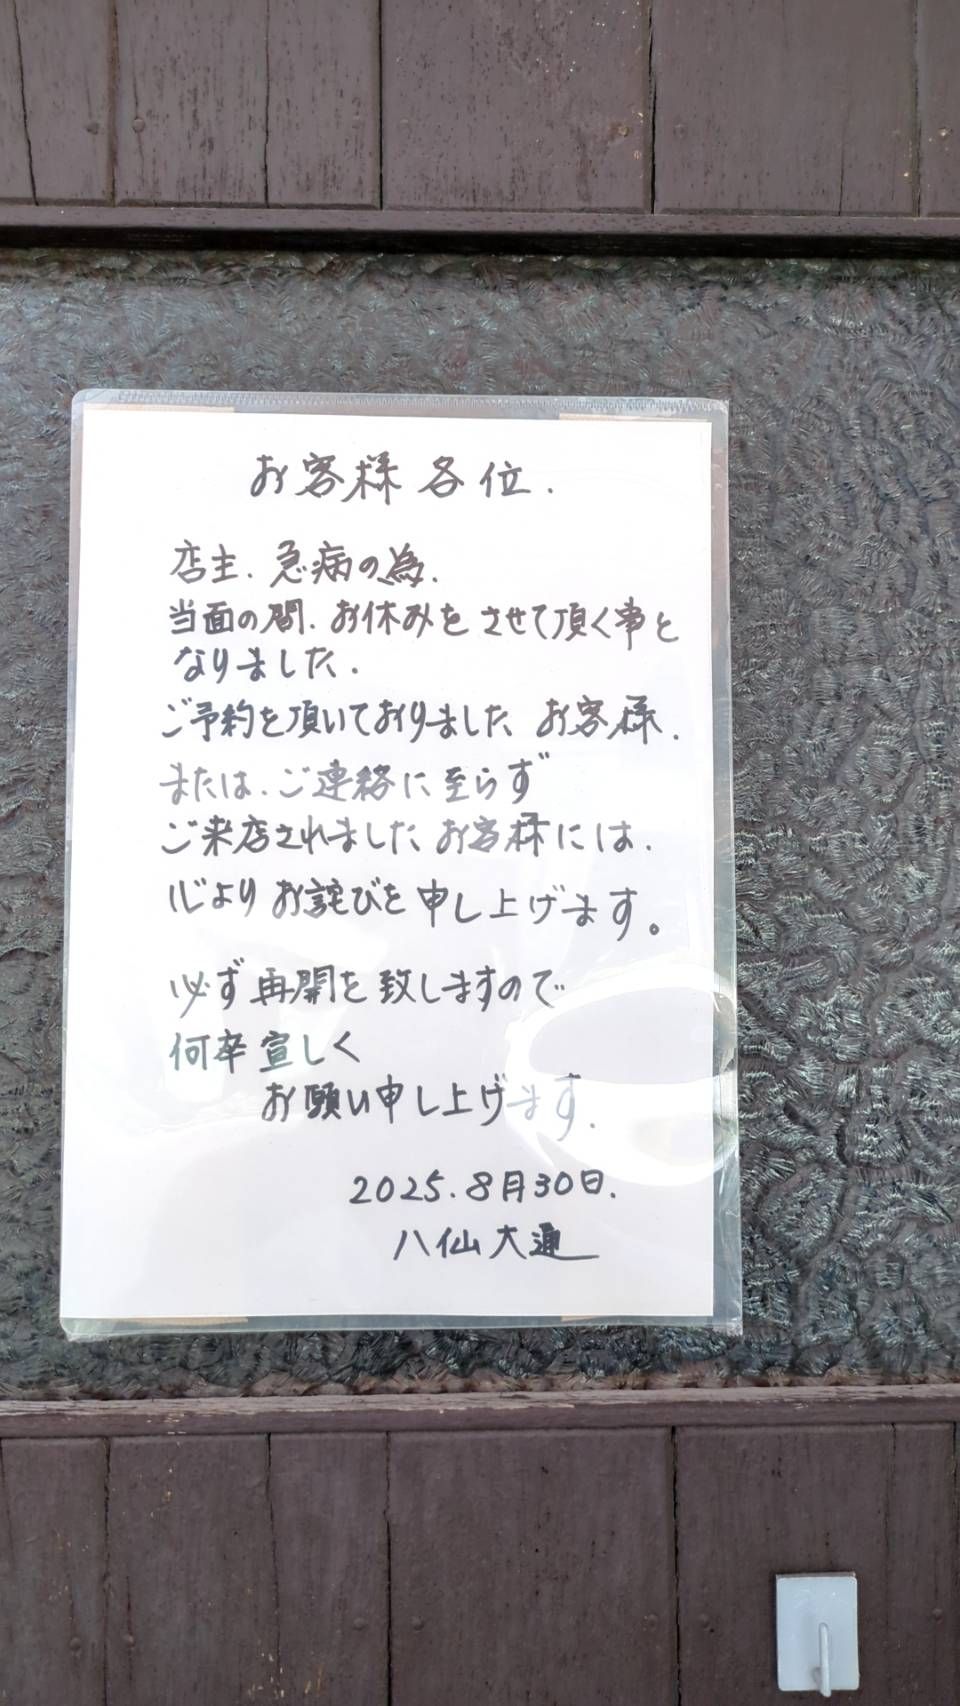 お客様各位.
店主.急病の為.
当面の間.お休みをさせて頂く事と
なりました.
ご予約を頂いておりましたお客様.
または.ご連絡に至らず
ご来店されましたお客様には.
心よりお詫びを申し上げます。
必ず再開を致しますので
何卒宜しく
お願い申し上げます.
2025.8月30日.
八仙大通